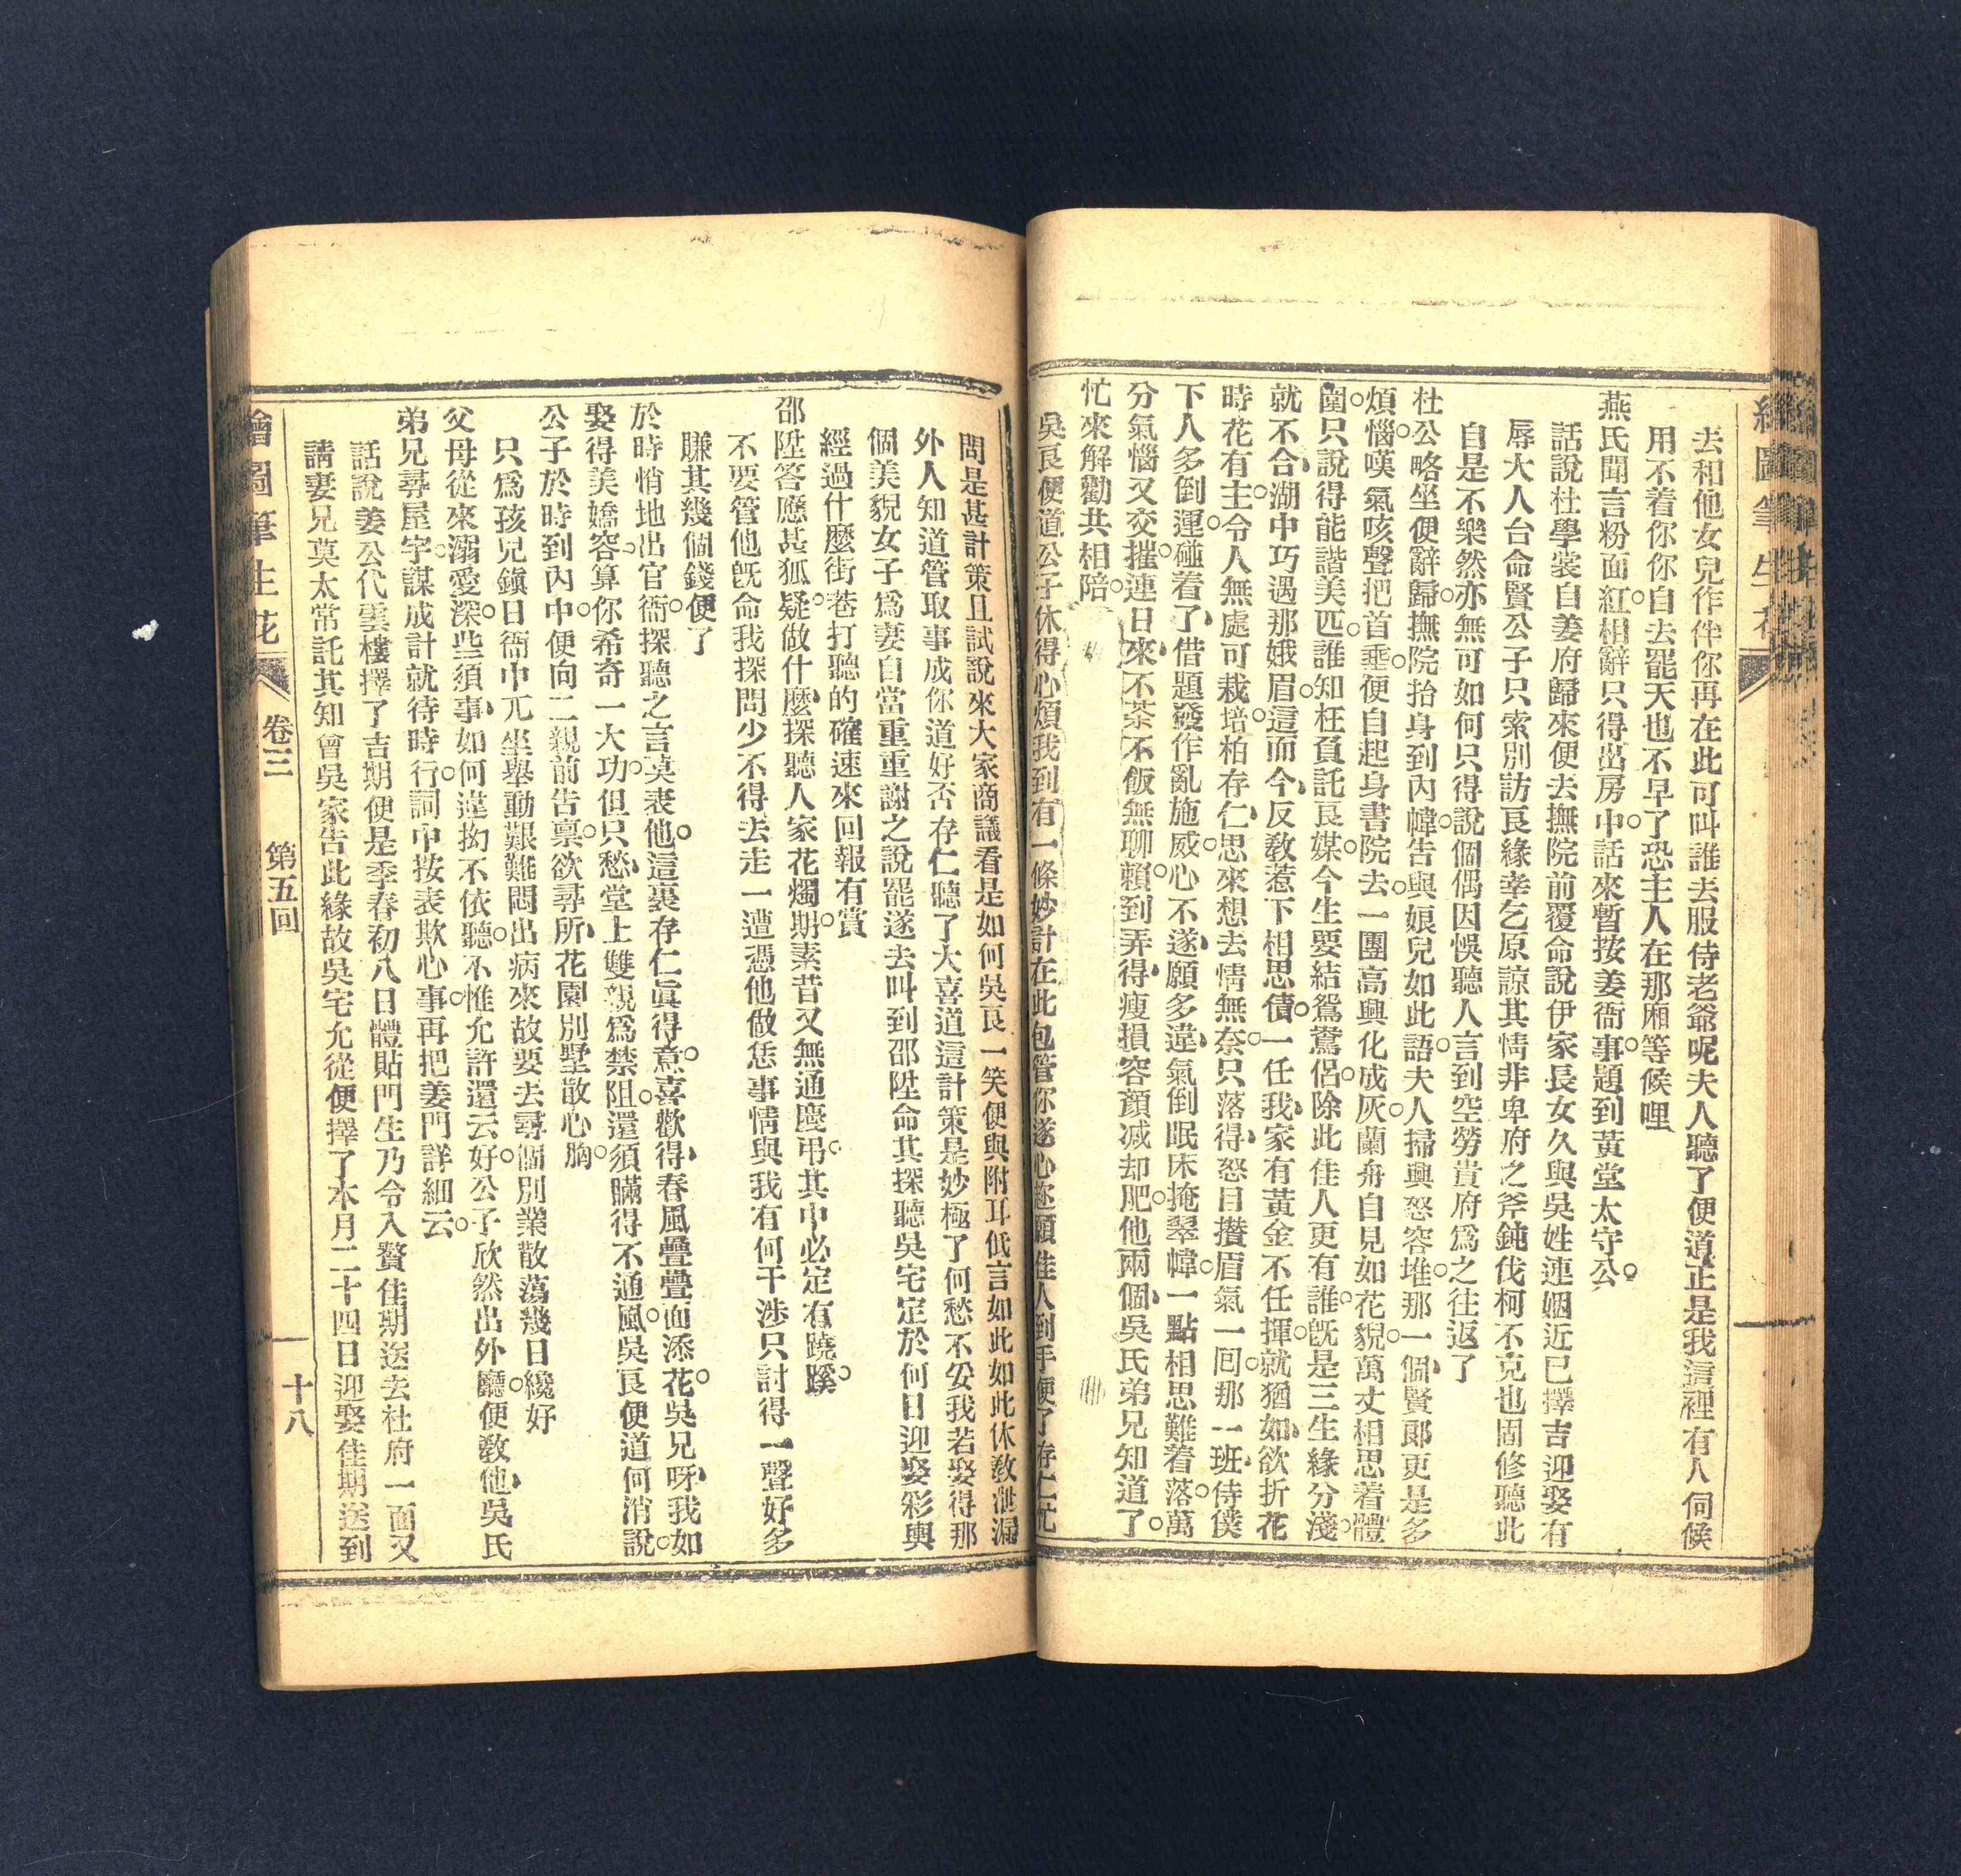 繪圖筆生花
去和他女兒作伴你再在此可叫誰去服侍老爺呢夫人聽了便道正是我這裡有人伺候
用不着你你自去罷天也不早了恐主人在那廂等候哩
燕氏聞言粉面紅。相辭只得出房中。話來暫按姜衙事。題到黃堂太守公。
話說杜學裳自姜府歸來便去撫院前覆命說伊家長女久與吳姓連姻近已擇吉迎娶有
辱大人台命賢公子只索別訪良緣幸乞原諒其情非卑府之斧鈍伐柯不克也固修聽此
自是不樂然亦無可如何只得說個偶因悞聽人言到空勞貴府爲之往返了
杜公略坐便辭歸。撫院抬身到內幃。告與娘兒如此語。夫人掃興怒容堆。那一個、賢郎更是多
煩惱。嘆氣咳聲把首垂。便自起身書院去。一團高興化成灰。蘭舟自見如花貌。萬丈相思着體
圍。只說得能諧美匹。誰知枉負託良媒。今生要結鴛鴦侶。除此佳人更有誰。既是三生緣分淺。
就不合、湖中巧遇那娥眉。這而今、反教惹下相思債。一任我、家有黃金不任揮。就猶如、欲折花
時花有主。令人無處可栽培。柏存仁、思來想去情無奈。只落得、怒目攢眉氣一囘。那一班、侍僕
下人多倒運。碰着了、借題發作亂施威。心不遂、願多違、氣倒眠床掩翠幃。一點相思難着落。萬
分氣惱又交摧。連日來、不茶不飯無聊賴。到弄得、瘦損容顏减却肥。他兩個、吳氏弟兄知道了。
忙來解勸共相陪。
吳良便道公子休得心煩我到有一條妙計在此包管你遂心趁願佳人到手便了存仁忙
問是甚計策且試說來大家商議看是如何吳良一笑便與附耳低言如此如此休教泄漏
外人知道管取事成你道好否存仁聽了大喜道這計策是妙極了何愁不妥我若娶得那
個美貌女子爲妻自當重重謝之說罷遂去叫到邵陞命其探聽吳宅定於何日迎娶彩輿
經過什麼街巷打聽的確速來回報有賞
邵陞答應甚狐疑。做什麼、探聽人家花燭期。素昔又無通慶弔。其中必定有蹺蹊。
不要管他既命我探問少不得去走一遭憑他做恁事情與我有何干涉只討得一聲好多
賺其幾個錢便了
於時悄地出官衙。探聽之言莫表他。這裏存仁眞得意。喜歡得、春風疊疊面添花。吳兄呀、我如
娶得美嬌容。算你希奇一大功。但只愁、堂上雙親爲禁阻。還須瞞得不通風。吳良便道何消說。
公子於時到內中。便向二親前告禀。欲尋所、花園別墅散心胸。
只爲孩兒鎭日衙中兀坐舉動艱難悶出病來故要去尋個別業散蕩幾日纔好
父母從來溺愛深。些須事、如何違拗不依聽。不惟允許還云好。公子欣然出外廳。便教他、吳氏
弟兄尋屋宇。謀成計就待時行。詞中按表欺心事。再把姜門詳細云。
話說姜公代雲樓擇了吉期便是季春初八日體貼門生乃令入贅佳期送去杜府一面又
請妻兄莫太常託其知會吳家告此緣故吳宅允從便擇了本月二十四日迎娶佳期送到
繪圖筆生花 卷三 第五回 十八